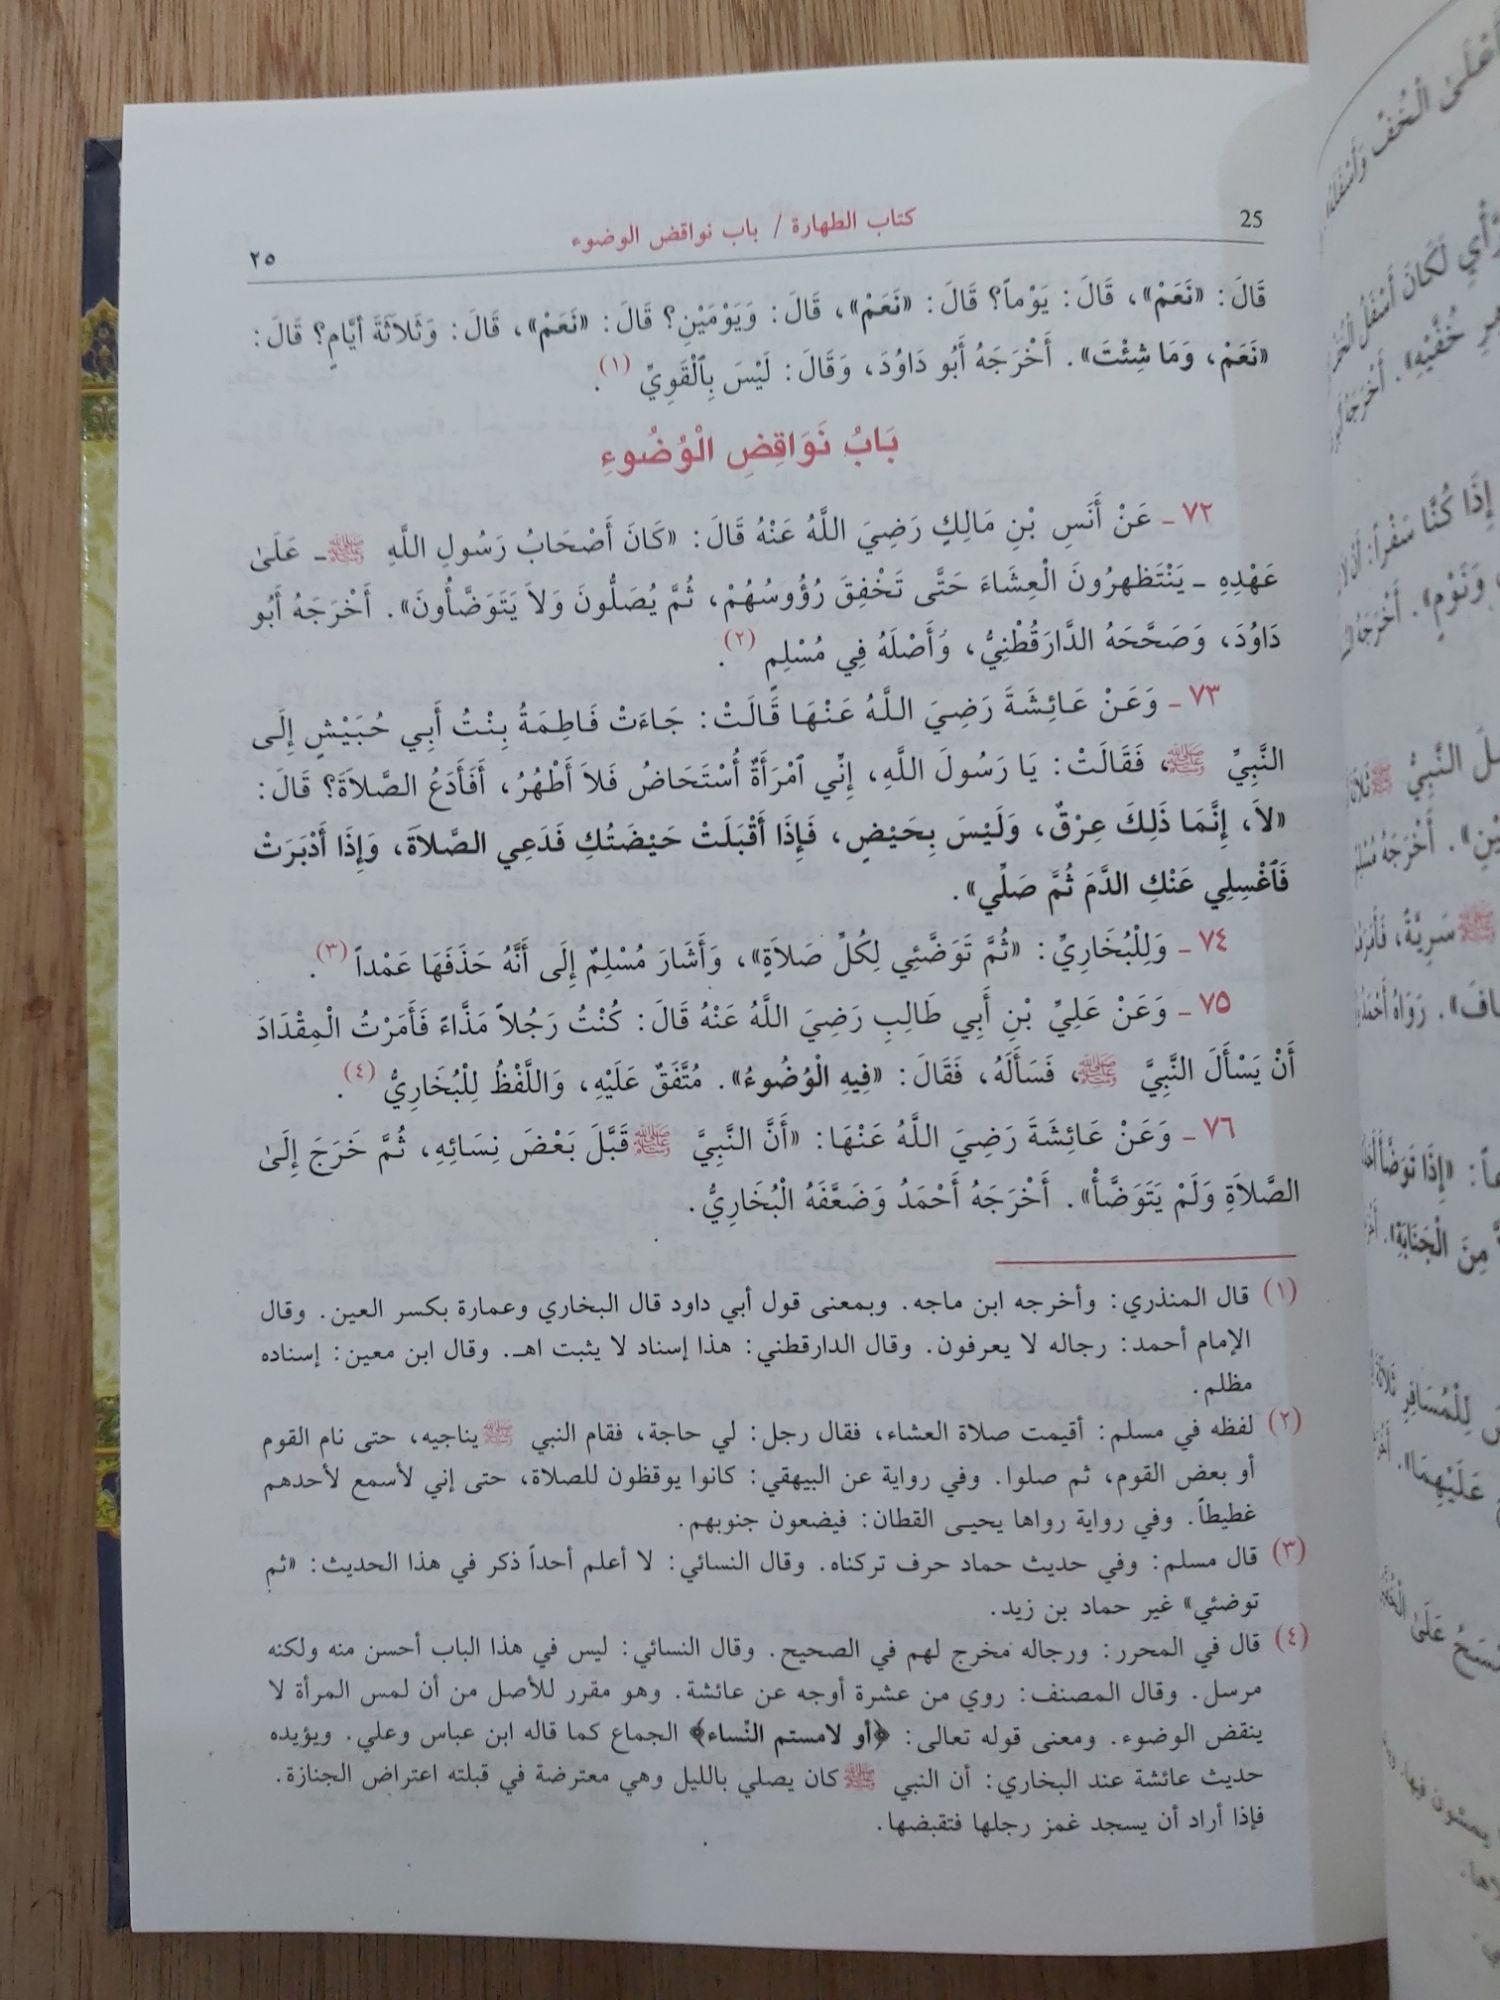 25
كتاب الطهارة / باب نواقض الوضوء
٢٥
قَالَ: «نَعَمْ»، قَالَ: يَوْماً؟ قَالَ: «نَعَمْ»، قَالَ: وَيَوْمَيْنِ؟ قَالَ: «نَعَمْ»، قَالَ: وَثَلاَثَةَ أَيَّامٍ؟ قَالَ:
«نَعَمْ، وَمَا شِئْتَ». أَخْرَجَهُ أَبُو دَاوُدَ، وَقَالَ: لَيْسَ بِٱلْقَوِيِّ (١).
بَابُ نَوَاقِضِ الْوُضُوءِ
٧٢ ـ عَنْ أَنَسِ بْنِ مَالِكٍ رَضِيَ اللَّهُ عَنْهُ قَالَ: «كَانَ أَصْحَابُ رَسُولِ اللَّهِ ﷺ ـ عَلَىٰ
عَهْدِهِ ـ يَنْتَظهرُونَ الْعِشَاءَ حَتَّى تَخْفِقَ رُؤُوسُهُمْ، ثُمَّ يُصَلُّونَ وَلاَ يَتَوَضَّأُونَ». أَخْرَجَهُ أَبُو
دَاوُدَ، وَصَحَّحَهُ الدَّارَقُطْنِيُّ، وَأَصْلَهُ فِي مُسْلِم (٢).
٧٣ ـ وَعَنْ عَائِشَةَ رَضِيَ اللَّهُ عَنْهَا قَالَتْ: جَاءَتْ فَاطِمَةُ بِنْتُ أَبِي حُبَيْشٍ إِلَى
النَّبِيِّ ﷺ، فَقَالَتْ: يَا رَسُولَ اللَّهِ، إِنِّي ٱمْرَأَةٌ أُسْتَحَاضُ فَلاَ أَطْهُرُ، أَفَأَدَعُ الصَّلاَةَ؟ قَالَ:
«لاَ، إِنَّمَا ذَلِكَ عِرْقٌ، وَلَيْسَ بِحَيْضٍ، فَإِذَا أَقْبَلَتْ حَيْضَتُكِ فَدَعِي الصَّلاَةَ، وَإِذَا أَدْبَرَتْ
فَٱغْسِلِي عَنْكِ الدَّمَ ثُمَّ صَلِّي».
٧٤ ـ وَلِلْبُخَارِيِّ: «ثُمَّ تَوَضَّئِي لِكُلِّ صَلاَةٍ»، وَأَشَارَ مُسْلِمٌ إِلَى أَنَّهُ حَذَفَهَا عَمْداً (٣).
٧٥ ـ وَعَنْ عَلِيِّ بْنِ أَبِي طَالِبِ رَضِيَ اللَّهُ عَنْهُ قَالَ: كُنْتُ رَجُلاً مَذَّاءً فَأَمَرْتُ الْمِقْدَادَ
أَنْ يَسْأَلَ النَّبِيَّ ﷺ، فَسَأَلَهُ، فَقَالَ: «فِيهِ الْوُضُوءُ». مُتَّفَقٌ عَلَيْهِ، وَاللَّفْظُ لِلْبُخَارِيُّ (٤).
٧٦ ـ وَعَنْ عَائِشَةَ رَضِيَ اللَّهُ عَنْهَا: «أَنَّ النَّبِيَّ ﷺ قَبَّلَ بَعْضَ نِسَائِهِ، ثُمَّ خَرَجَ إِلَىٰ
الصَّلاَةِ وَلَمْ يَتَوَضَّأْ». أَخْرَجَهُ أَحْمَدُ وَضَعَّفَهُ الْبُخَارِيُّ.
(١) قال المنذري: وأخرجه ابن ماجه. وبمعنى قول أبي داود قال البخاري وعمارة بكسر العين. وقال
الإمام أحمد: رجاله لا يعرفون. وقال الدارقطني: هذا إسناد لا يثبت اهـ. وقال ابن معين: إسناده
مظلم.
(٢) لفظه في مسلم: أقيمت صلاة العشاء، فقال رجل: لي حاجة، فقام النبي ﷺ يناجيه، حتى نام القوم
أو بعض القوم، ثم صلوا. وفي رواية عن البيهقي: كانوا يوقظون للصلاة، حتى إني لأسمع لأحدهم
غطيطاً. وفي رواية رواها يحيـى القطان: فيضعون جنوبهم.
(٣) قال مسلم: وفي حديث حماد حرف تركناه. وقال النسائي: لا أعلم أحداً ذكر في هذا الحديث: «ثم
توضئي» غير حماد بن زيد.
(٤) قال في المحرر: ورجاله مخرج لهم في الصحيح. وقال النسائي: ليس في هذا الباب أحسن منه ولكنه
مرسل. وقال المصنف: روي من عشرة أوجه عن عائشة. وهو مقرر للأصل من أن لمس المرأة لا
ينقض الوضوء. ومعنى قوله تعالى: ﴿أو لامستم النّساء﴾ الجماع كما قاله ابن عباس وعلي. ويؤيده
حديث عائشة عند البخاري: أن النبي ﷺ كان يصلي بالليل وهي معترضة في قبلته اعتراض الجنازة.
فإذا أراد أن يسجد غمز رجلها فتقبضها.